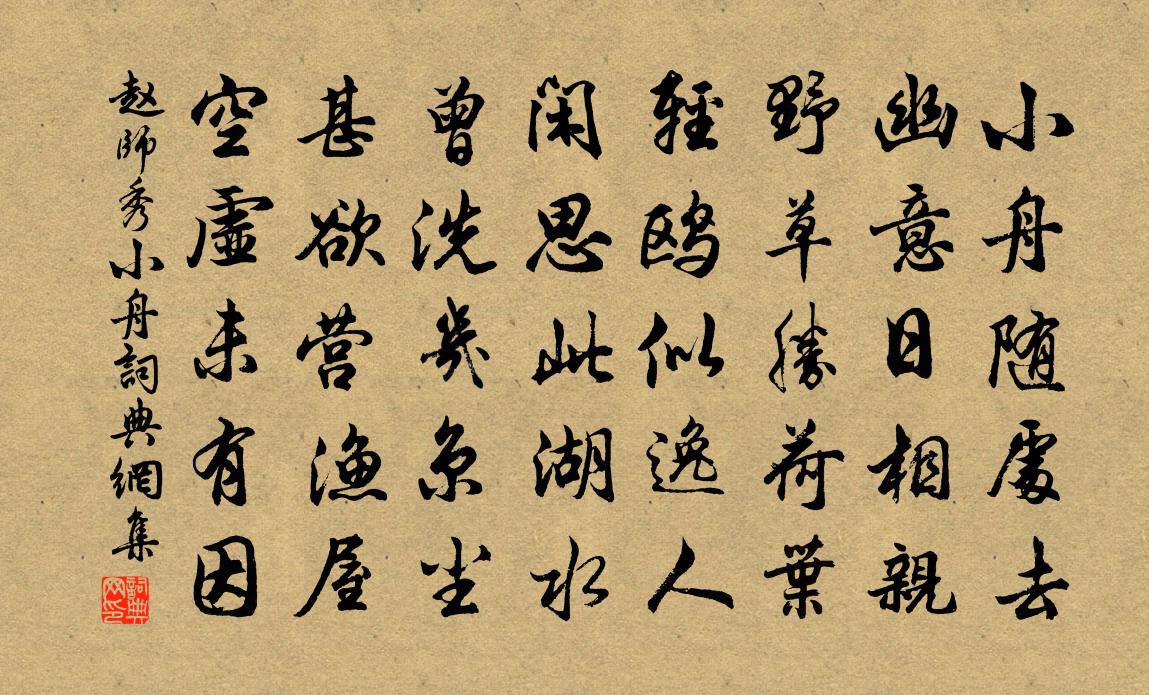 小舟随處去
幽意日相親
野草勝荷葉
輕鸥似逸人
閑思此湖水
曾洗幾京尘
甚欲营漁屋
空虛未有因
赵師秀小舟詞典網集
詞典网印